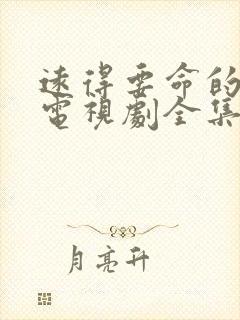 遠得要命的
電視劇全集
月亮升